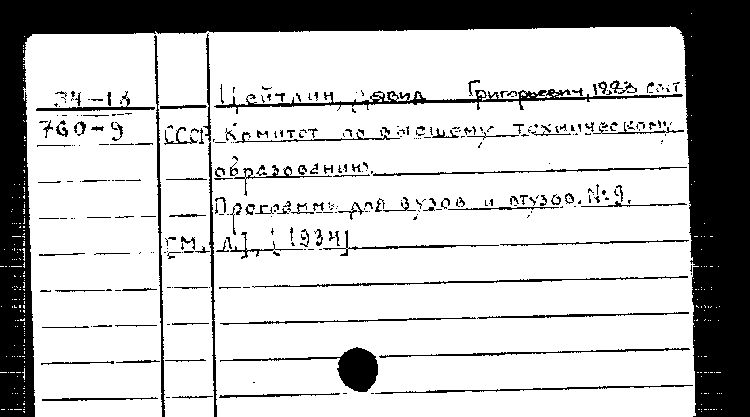 34-13 Цейтлин, Давид Григорьевич, 1883 сост
760-9 СССР. Комитет по высшему техническому
образованию.
Программы для вузов и втузов. №9.
[М. Л.], [1934]